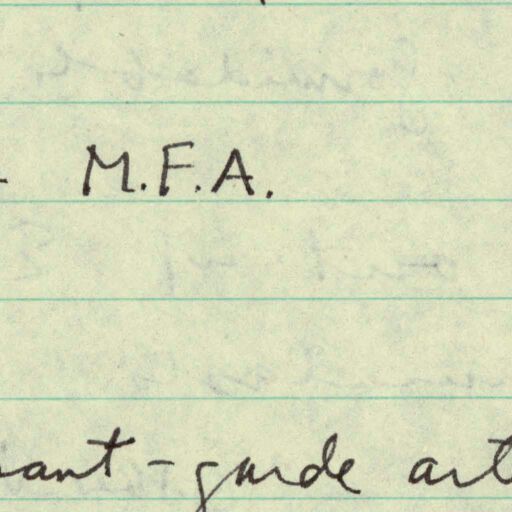 - M.F.A.
vant-garde art